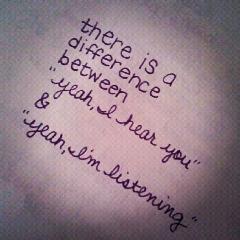 there is a
difference
between
"yeah, I hear you"
&
"yeah, I'm listening"